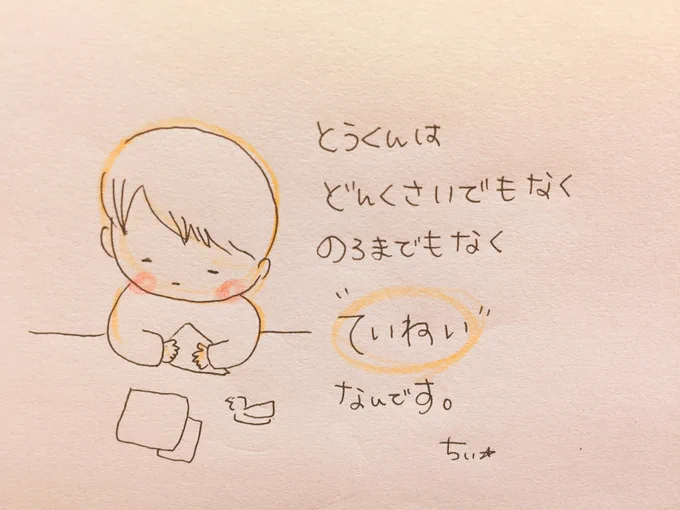 とうくんは
どんくさいでもなく
のろまでもなく
"ていねい"
なんです。
ちぃ☆